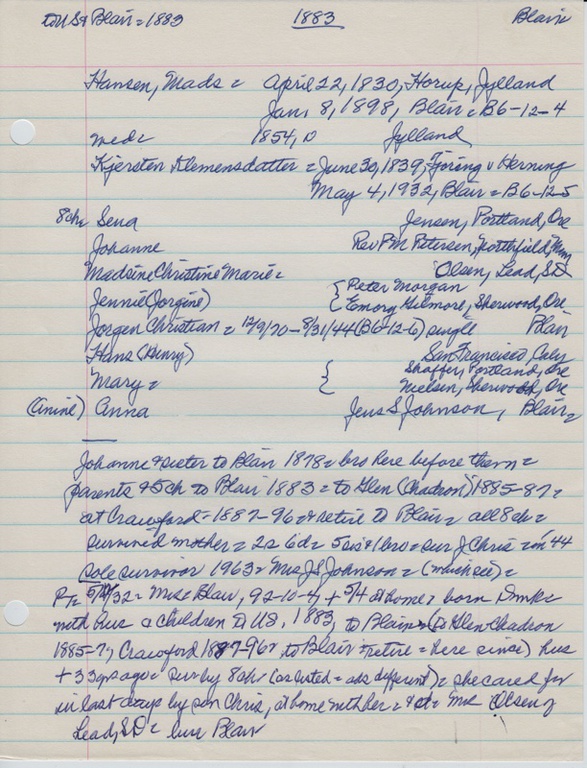 to US & Blair = 1883 1883 Blair
Hansen, Mads = April 22, 1830, Horup, Jylland
Jan. 8, 1898, Blair = B6-12-4
med = 1854, D Jylland
Kjersten Klemensdatter = June 30, 1839, Tjoring v Herning
May 4, 1932, Blair = B6-12-5
8 ch = Sena Jensen, Portland, Ore
Johanne Rev P M Petersen, Northfield, Minn
Madsine Christine Marie = Olsen, Lead, SD
Jennie (Jorgine) { Peter Morgan
Emory Gilmore, Sherwood, Ore
Jorgen Christian = 12/9/70 - 8/31/44 (B6-12-6) single Blair
Hans (Henry) San Francisco, Caly
Mary = { Shaffer, Portland, Ore
Nielsen, Sherwood, Ore
(Amine) Anna Jens S Johnson, Blair =
Johanne & sister to Blair 1878 = bro here before them =
parents & 5 ch to Blair 1883 = to Glen (Chadron) 1885-87 =
at Crawford = 1887-96 = & retire to Blair = all 8 ch =
survived mother = 2s 6d = 5 sis & 1 bro = sur J Chris = in '44
sole survivor 1963 = Mrs J S Johnson = (which see) =
PT = 5/ /32 = Mrs = Blair, 92-10-4, + 5/4 at home = born Dmk =
with hus & children to US, 1883, to Blair = (to Glen-Chadron
1885-7, Crawford 1887-96 = to Blair = retire = here since) hus
+ 33 yrs ago = sur by 8 ch = (as listed = ads different) = she cared for
in last days by son Chris, at home with her = & dt = Mrs Olsen of
Lead, SD = bur Blair